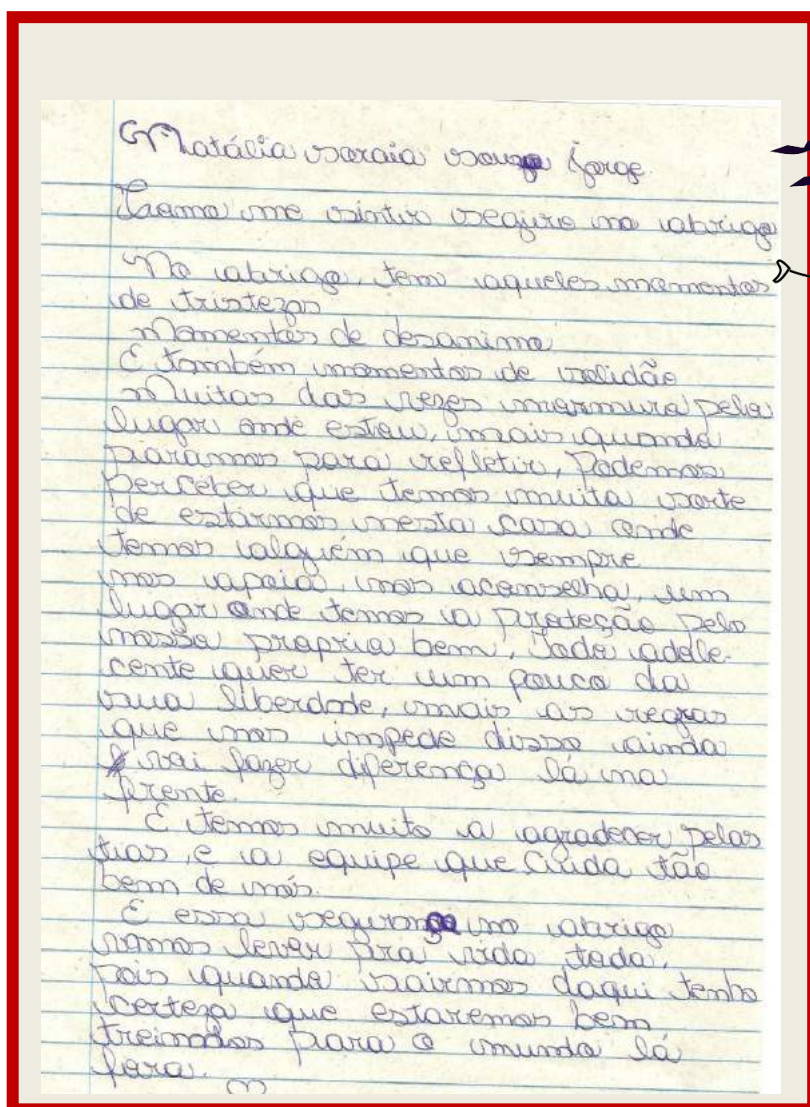 Natália soraia souza Jorge
Como me sintir seguro no abrigo
No abrigo, tem aqueles momentos
de tristezas
Momentos de desanimo
E também momentos de solidão
Muitas das vezes murmura pelo
lugar onde estou, mais quando
paramos para refletir, Podemos
perceber que temos muita sorte
de estarmos nesta casa onde
temos alguém que sempre
nos apoia, nos aconselha, um
lugar onde temos a proteção pelo
nosso proprio bem, Todo adole-
cente quer ter um pouco da
sua liberdade, mais as regras
que nos impede disso ainda
vai fazer diferença lá na
frente.
E temos muito a agradecer pelas
tias, e a equipe que Cuida tão
bem de nós.
E essa segurança no abrigo
vamos levar pra vida toda,
pois quando sairmos daqui tenho
certeza que estaremos bem
treinados para o mundo lá
fora.